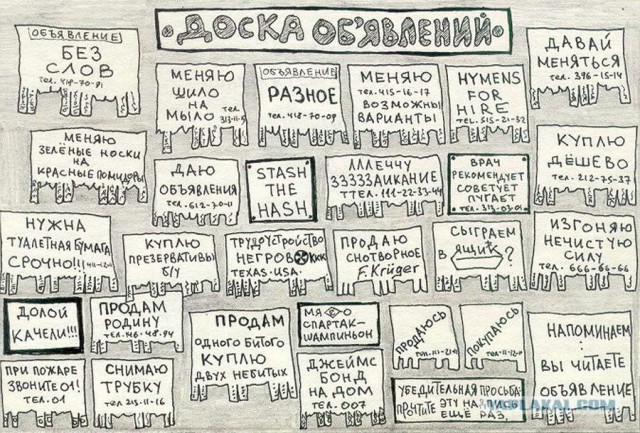 ДОСКА ОБЪЯВЛЕНИЙ
ОБЪЯВЛЕНИЕ
БЕЗ
СЛОВ
МЕНЯЮ
ШИЛО
НА
МЫЛО
ОБЪЯВЛЕНИЕ
РАЗНОЕ
МЕНЯЮ
ТЕЛ. 415-16-17
ВОЗМОЖНЫ
ВАРИАНТЫ
HYMENS
FOR
HIRE
TEL. 515-21-32
ДАВАЙ
МЕНЯТЬСЯ
ТЕЛ. 396-15-14
МЕНЯЮ
ЗЕЛЁНЫЕ НОСКИ
НА
КРАСНЫЕ ПОМИДОРЫ
ДАЮ
ОБЪЯВЛЕНИЯ
ТЕЛ. 612-70-11
STASH
THE
HASH
ЛЛЛЕЧЧУ
ЗЗЗЗЗАИКАНИЕ
ТТЕЛ. 111-22-33-44
ВРАЧ
РЕКОМЕНДУЕТ
СОВЕТУЕТ
ПУГАЕТ
ТЕЛ. 313-03-01
КУПЛЮ
ДЁШЕВО
ТЕЛ. 212-75-37
НУЖНА
ТУАЛЕТНАЯ БУМАГА
СРОЧНО!!!
КУПЛЮ
ПРЕЗЕРВАТИВЫ
Б/У
ТРУДУСТРОЙСТВО
НЕГРОВ KKK
TEXAS-USA.
ПРОДАЮ
СНОТВОРНОЕ
F. Krüger
СЫГРАЕМ
В ЯЩИК ?
ИЗГОНЯЮ
НЕЧИСТУЮ
СИЛУ
ТЕЛ. 666-66-66
ДОЛОЙ
КАЧЕЛИ!!!
ПРОДАМ
РОДИНУ
ПРОДАМ
ОДНОГО БИТОГО
КУПЛЮ
ДВУХ НЕБИТЫХ
СПАРТАК-
ШАМПИНЬОН
ПРОДАЮСЬ
ПОКУПАЮСЬ
НАПОМИНАЕМ:
ВЫ ЧИТАЕТЕ
ОБЪЯВЛЕНИЕ
ПРИ ПОЖАРЕ
ЗВОНИТЕ 01!
ТЕЛ. 01
СНИМАЮ
ТРУБКУ
ТЕЛ 215-11-16
ДЖЕЙМС
БОНД
НА ДОМ
ТЕЛ. 007
УБЕДИТЕЛЬНАЯ ПРОСЬБА:
ПРОЧТИТЕ ЭТУ НАДПИСЬ
ЕЩЁ РАЗ.